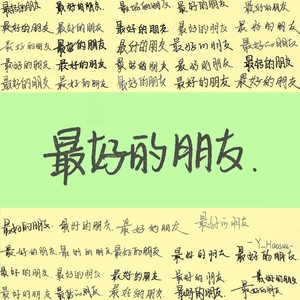 最好的朋友 最好的朋友 最好的朋友 最好的朋友 最好的朋友
最好的朋友 最好的朋友 最好的朋友 最好的朋友 最好的朋友
最好的朋友 最好的朋友 最好的朋友 最好的朋友 最好的朋友
最好的朋友 最好的朋友 最好的朋友 最好的朋友 最好的朋友
最好的朋友 最好的朋友 最好的朋友 最好的朋友 最好的朋友
最好的朋友.
最好的朋友. 最好的朋友. 最好的朋友 最好的朋友
最好的朋友 最好的朋友 最好的朋友 最好的朋友 最好的朋友
最好的朋友 最好的朋友 最好的朋友 最好的朋友 最好的朋友
最好的朋友 最好的朋友 最好的朋友 最好的朋友 最好的朋友.